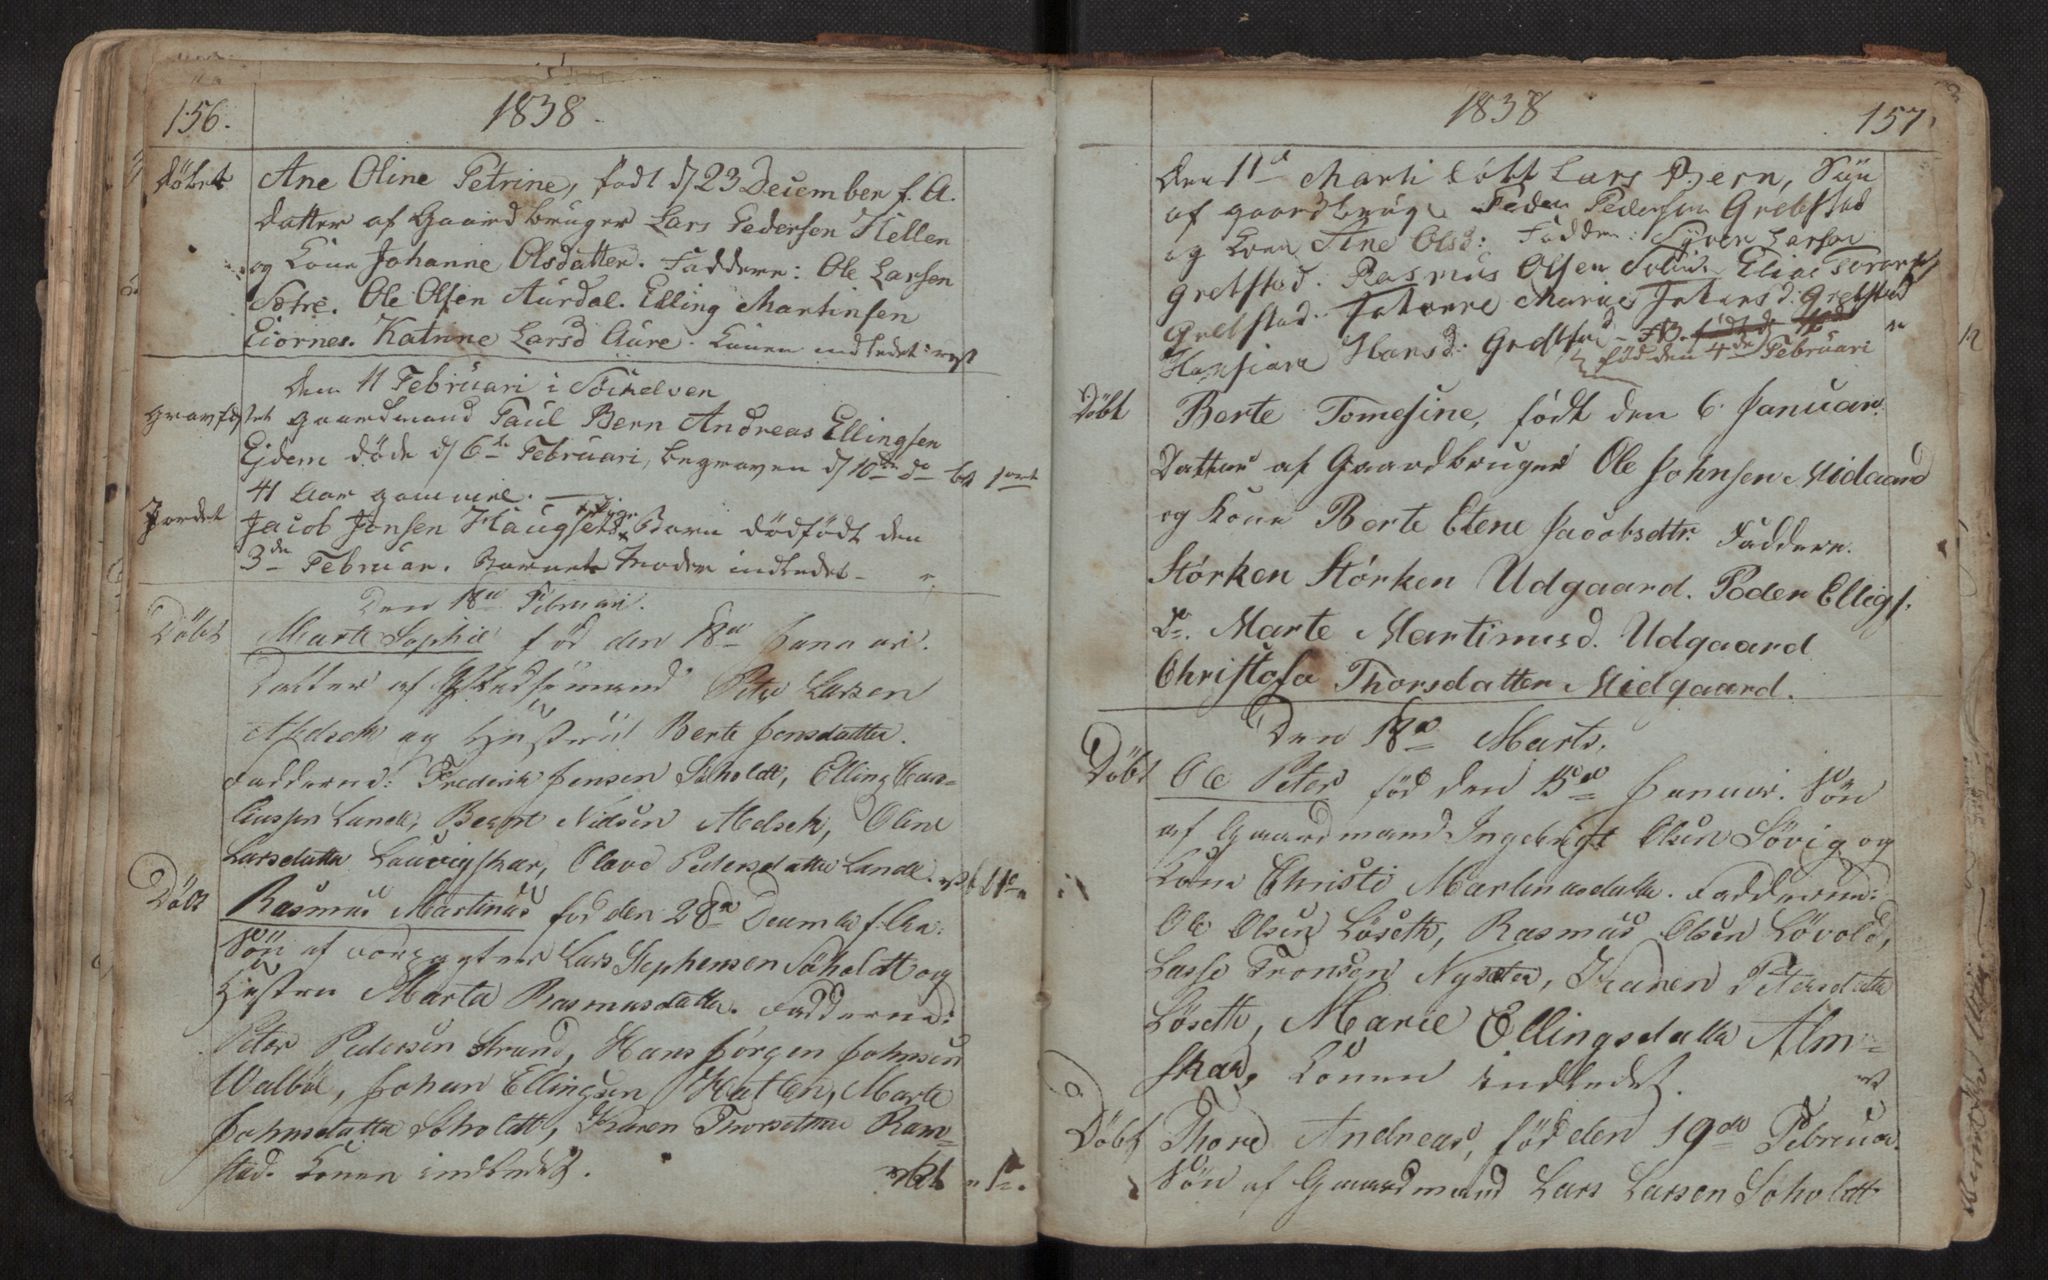 156.
1838.
Döbt Ane Oline Petrine, født d 23 December f. A.
Datter af Gaardbruger Lars Pedersen Hellen
og Kone Johanne Olsdatter. Faddere: Ole Larsen
Sætre. Ole Olsen Aurdal. Elling Martinsen
Eiornes. Katrine Larsd Aure. Konen indledet
Den 11 Februari i
Gravfæstet Gaardmand Paul Bern Andreas Ellingsen
Ejdem døde d 6te Februari, begraven d 10de do
41 Aar gammel.
Jordet Jacob Jonsen Barn dødfødt den
3de Februar. Barnets Moder indledet
Den 18de Februari.
Döbt Marte Sophie fød den 18de Januari.
Datter af Peter Larsen
og Hustru Berte Jonsdatter.
Fadderne: Frederik Jensen Soholdt, Elling
Lande, Bernt Nielsen Oline
Larsdatter Pedersdatter Lande.
Döbt Rasmus Martinus fød den 28de Decembr f. Aar.
Søn af Lars Stephensen Soholdt og
Hustru Marta Rasmusdatter. Fadderne:
Peter Pedersen Strand, Hans Jørgen Johnsen
Walbøe, Johan Ellingsen Hatlen, Marte
Johnsdatter Soholdt, Karen Ram-
stad. Konen indledet.
1838
157.
Den 11te Marti døbt Lars Bern, Søn
af Gaardbruger Peder Pedersen Grebstad
og Kone Ane Olsd: Fadder: Larsen
Grebstad. Rasmus Olsen
Grebstad. Marie Grebstad
Hansine Hansd: Grebstad
fød den 4de Februari
Döbt Berte Tomesine, født den 6 Januari
Datter af Gaardbruger Ole Johnsen Midgaard
og Kone Berte Elene Jacobsdtr. Faddere.
Størken Størken Udgaard. Peder Ellings.
Do. Marte Martinusd. Udgaard
Christofa Thorsdatter Midgaard.
Den 18de Marts.
Döbt Ole Peter fød den 15de Januar. Søn
af Gaardmand Ingebrigt Olsen Søvig og
Kone Christi Martinusdatter. Fadderne:
Ole Olsen Løseth, Rasmus Olsen Løvold,
Lasse Tronsen Nysæter, Karen Petersdatter
Løseth, Marie Ellingsdatter Alm-
skar. Konen indledet.
Döbt Thore Andreas, fød den 19de Februar
Søn af Gaardmand Lars Larsen Soholdt